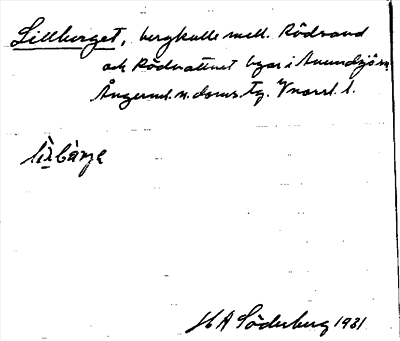 Lillberget, bergkulle mell. Rödsand
och Rödvattnet byar i Anundsjö sn.
Ångerml. n. doms. tg. Vnorrl. l.
H A Söderberg 1931